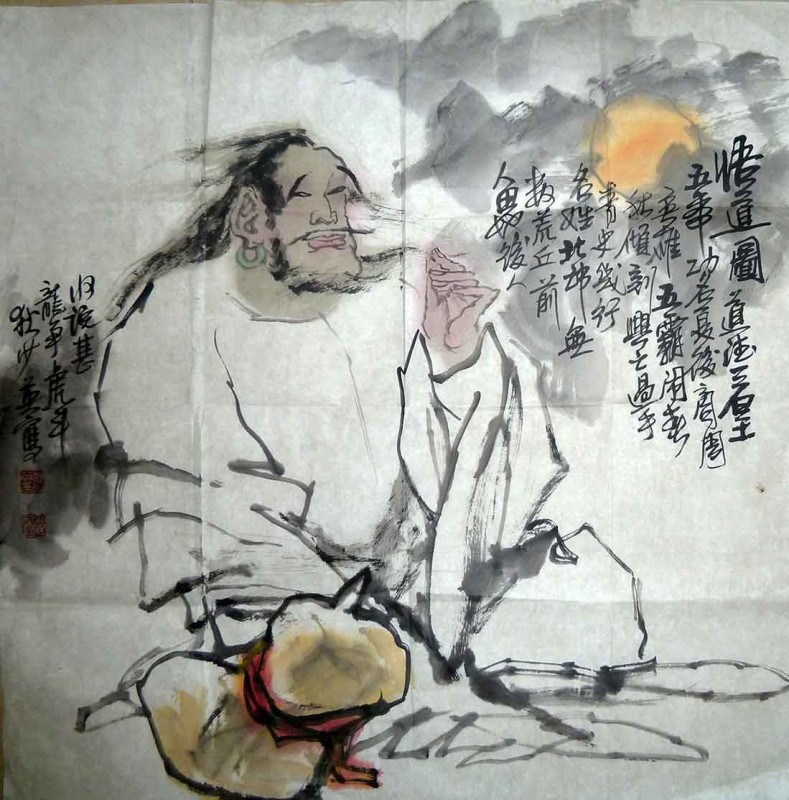 悟道圖 道德三皇
五帝 功名夏後商周
英雄五霸闹春
秋傾刻興亡過手
青史幾行
名姓北邙無
数荒丘前
人田地後人
收說甚
龍争虎斗
狄少英寫